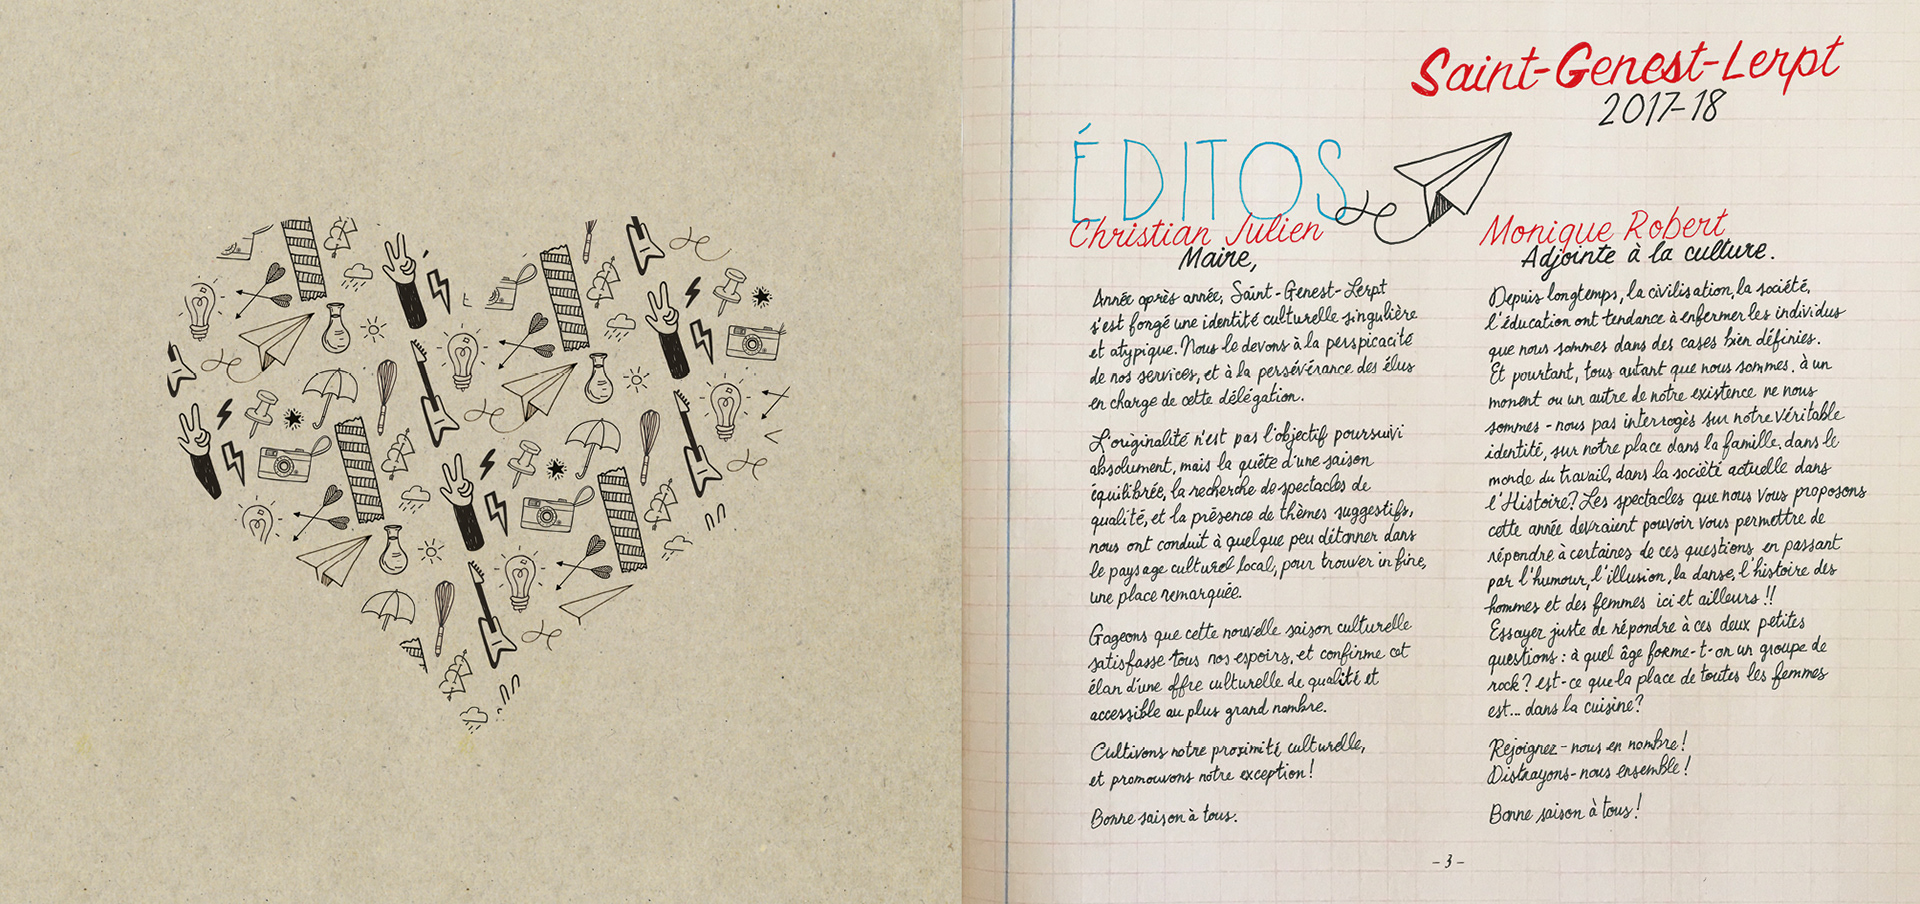 Saint-Genest-Lerpt
2017-18
ÉDITOS
Christian Julien
Maire,
Année après année, Saint-Genest-Lerpt
s'est forgé une identité culturelle singulière
et atypique. Nous le devons à la perspicacité
de nos services, et à la persévérance des élus
en charge de cette délégation.
L'originalité n'est pas l'objectif poursuivi
absolument, mais la quête d'une saison
équilibrée, la recherche de spectacles de
qualité, et la présence de thèmes suggestifs,
nous ont conduit à quelque peu détonner dans
le paysage culturel local, pour trouver in fine,
une place remarquée.
Gageons que cette nouvelle saison culturelle
satisfasse tous nos espoirs, et confirme cet
élan d'une offre culturelle de qualité et
accessible au plus grand nombre.
Cultivons notre proximité culturelle,
et promouvons notre exception!
Bonne saison à tous.
Monique Robert
Adjointe à la culture.
Depuis longtemps, la civilisation, la société,
l'éducation ont tendance à enfermer les individus
que nous sommes dans des cases bien définies.
Et pourtant, tous autant que nous sommes, à un
moment ou un autre de notre existence ne nous
sommes-nous pas interrogés sur notre véritable
identité, sur notre place dans la famille, dans le
monde du travail, dans la société actuelle dans
l'Histoire? Les spectacles que nous vous proposons
cette année devraient pouvoir vous permettre de
répondre à certaines de ces questions en passant
par l'humour, l'illusion, la danse, l'histoire des
hommes et des femmes ici et ailleurs!!
Essayer juste de répondre à ces deux petites
questions: à quel âge forme-t-on un groupe de
rock? est-ce que la place de toutes les femmes
est... dans la cuisine?
Rejoignez-nous en nombre!
Distrayons-nous ensemble!
Bonne saison à tous!
-3-